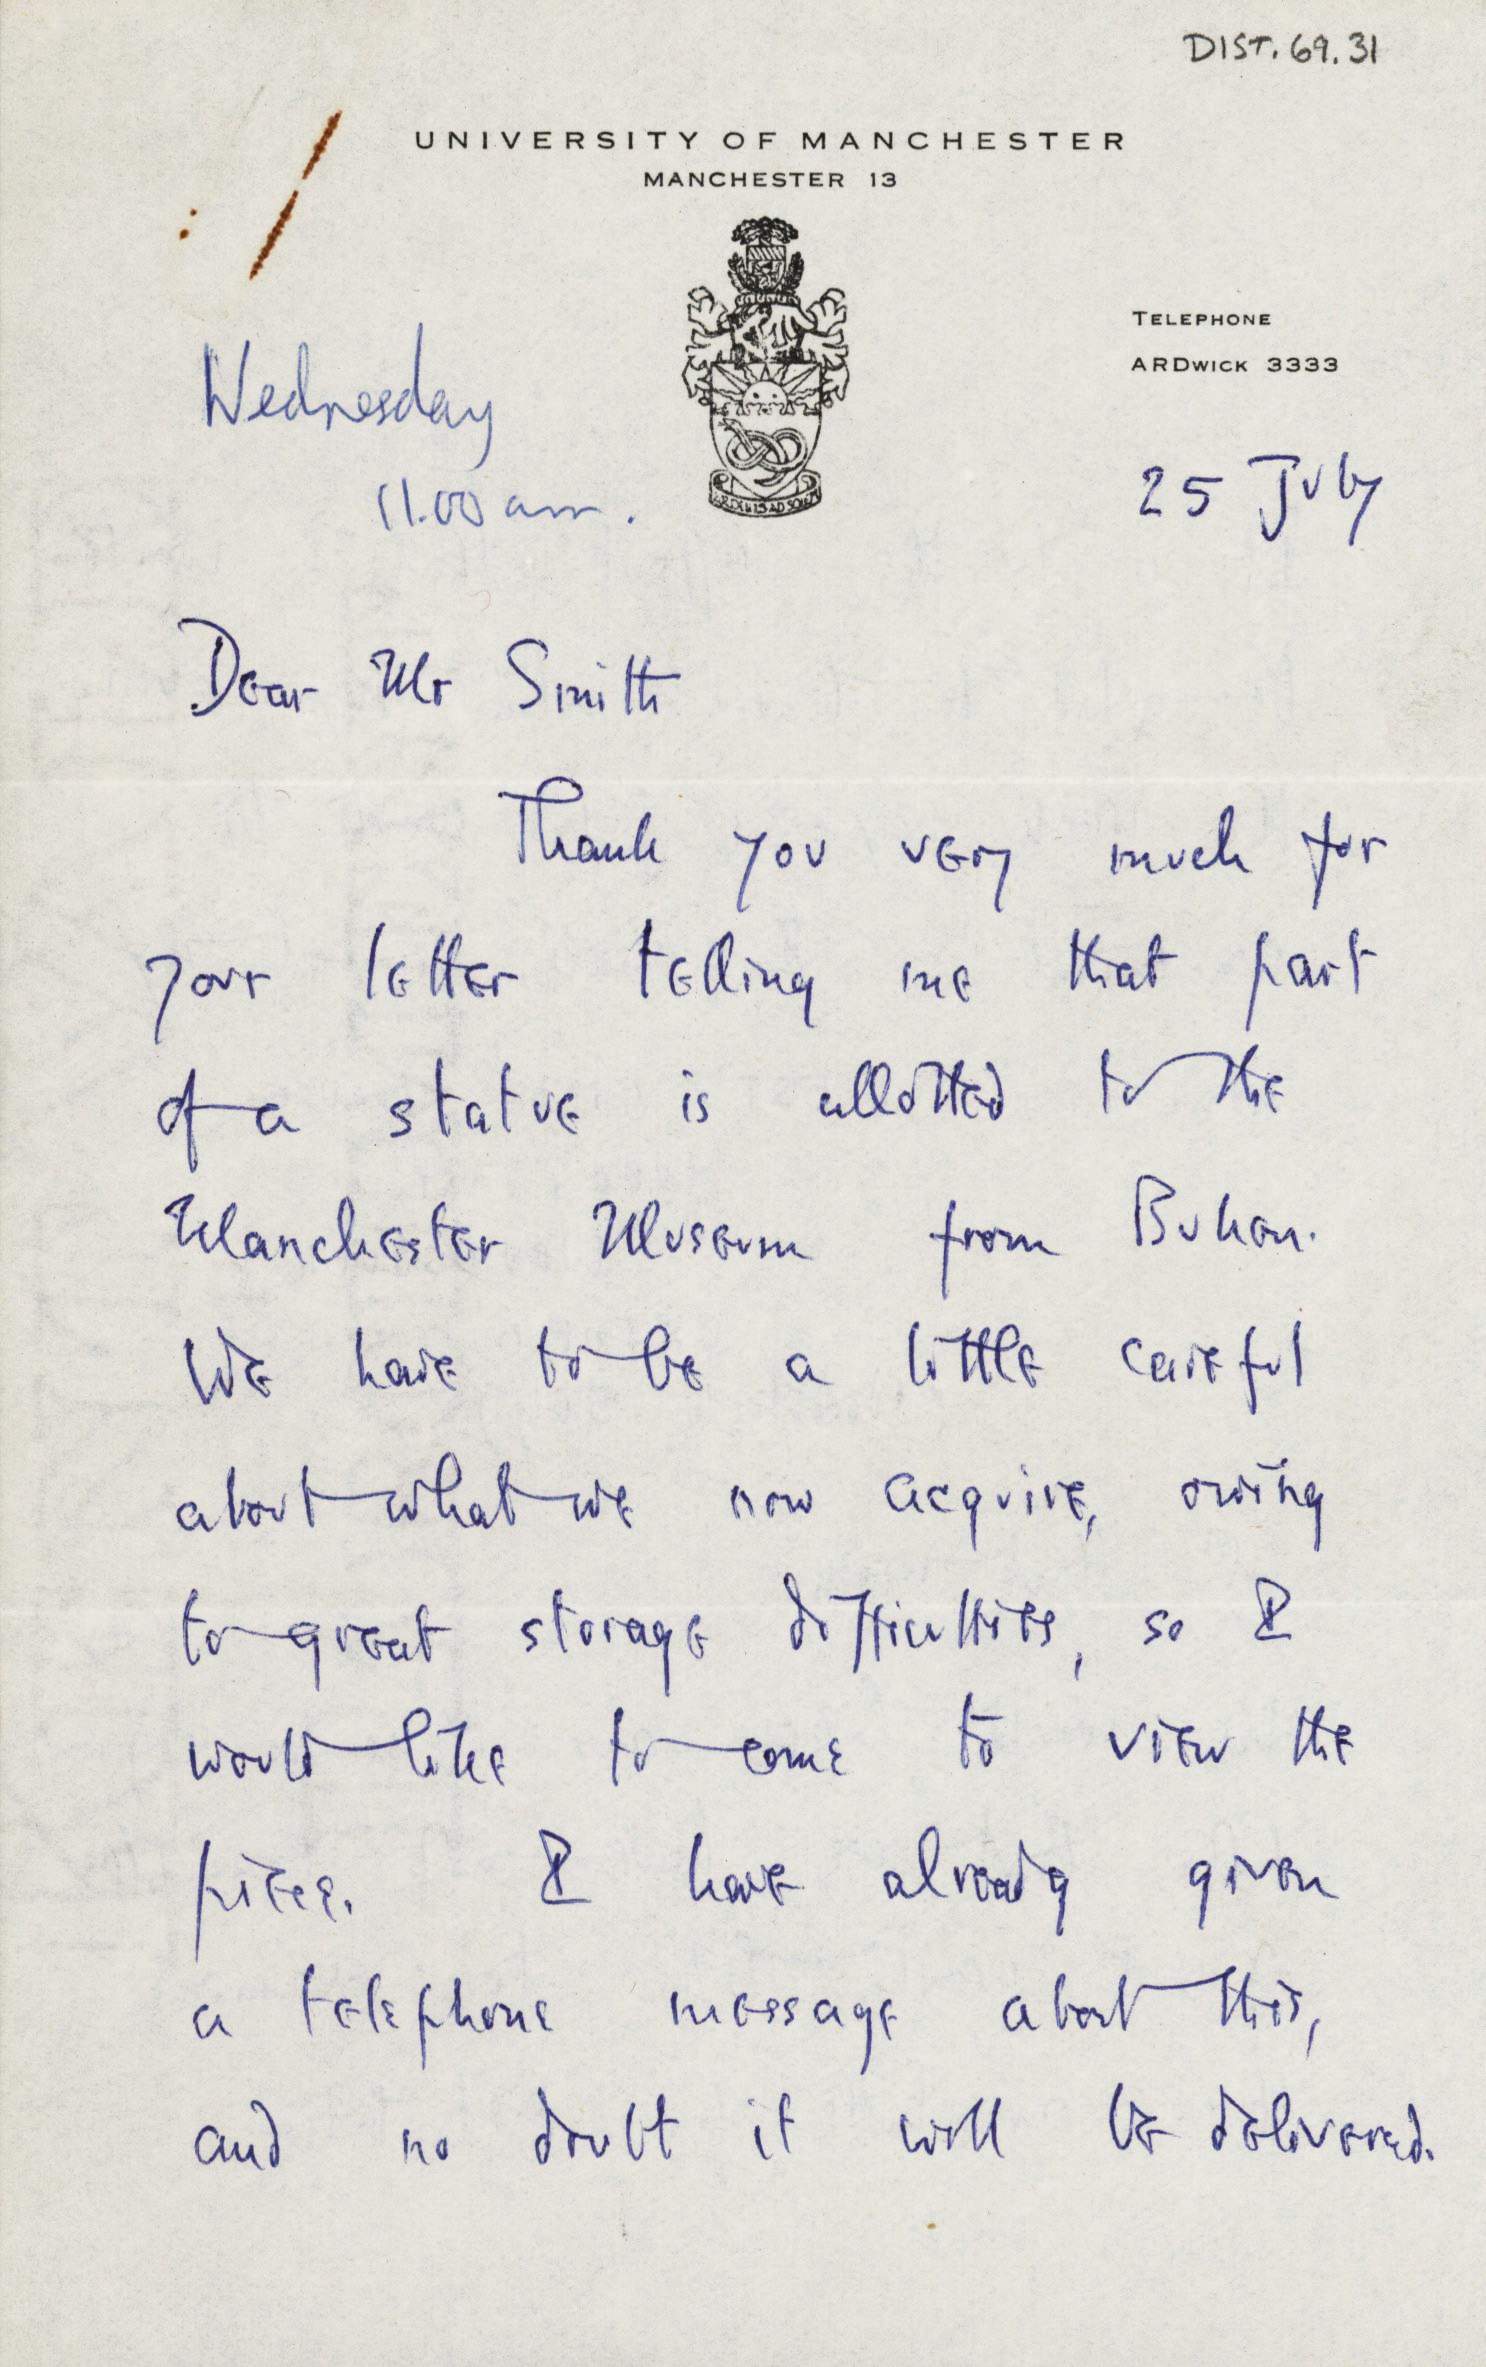 DIST. 69.31
UNIVERSITY OF MANCHESTER
MANCHESTER 13
TELEPHONE
ARDWICK 3333
Wednesday
11.00 am.
25 July
Dear Mr Smith
Thank you very much for
your letter telling me that part
of a statue is allotted to the
Manchester Museum from Buhen.
We have to be a little careful
about what we now acquire, owing
to great storage difficulties, so I
would like to come to view the
piece. I have already given
a telephone message about this,
and no doubt it will be delivered.